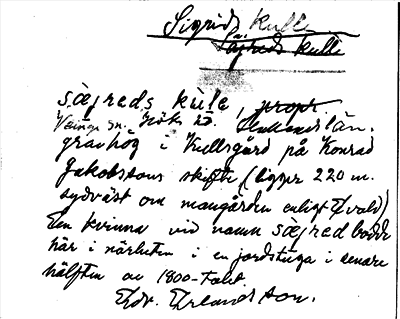 Sigrids kulle
Sägreds kulle
sægreds kule, propr
Veinge sn. Höks hd. Hallands län.
gravhög i Kullsgård på Konrad
Jakobssons skifte (ligger 220 m.
sydväst om mangården enligt Evald)
En kvinna vid namn sægred bodde
här i närheten i en jordstuga i senare
hälften av 1800-talet.
Edv. Erlandsson.